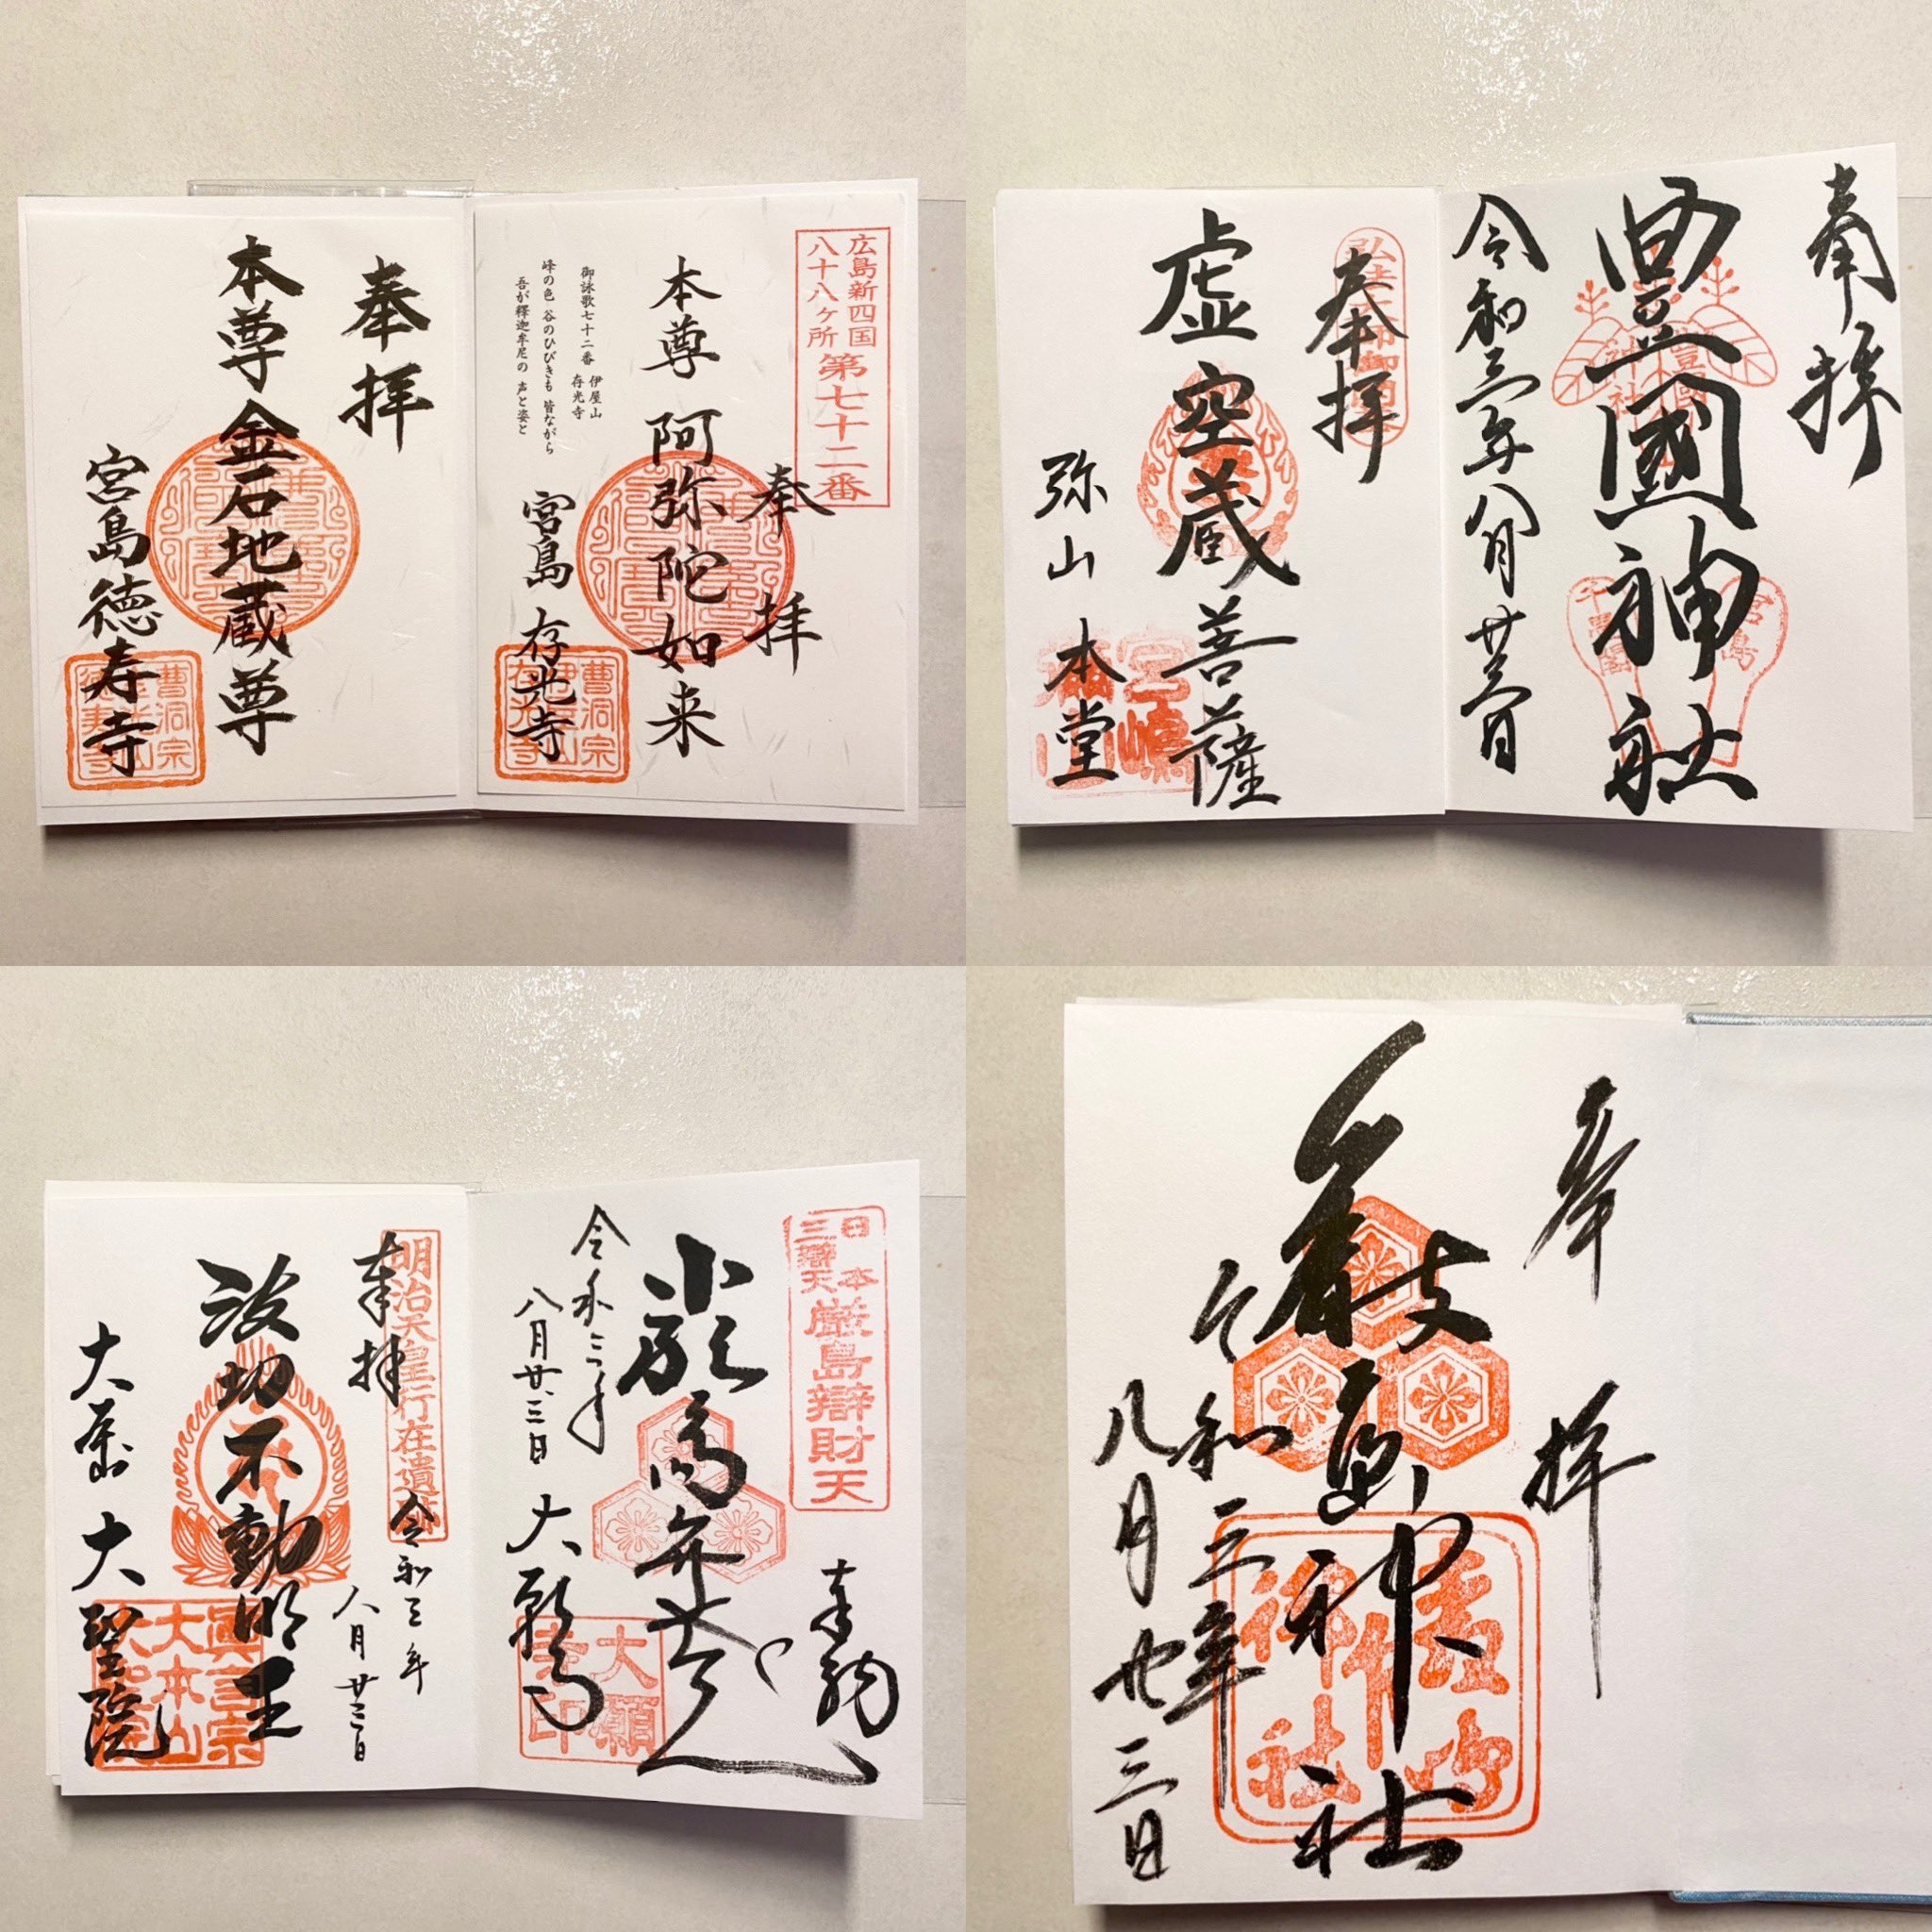 奉拝
本尊 金石地蔵尊
宮島 徳寿寺
曹洞宗
広島新四国
八十八ヶ所
第七十二番
奉拝
本尊 阿弥陀如来
御詠歌七十二番 伊屋山 存光寺
峰の色 谷のひびきも 皆ながら
吾が釋迦牟尼の 声と姿と
宮島 存光寺
曹洞宗
奉拝
虚空蔵菩薩
弥山 本堂
奉拝
豊國神社
令和三年八月廿三日
宮島
千畳閣
明治天皇行在遺
奉拝
令和三年
八月廿三日
波切不動明王
大本山 大聖院
真言宗
大本山
大聖院
日本
三辯天
厳島辯財天
奉納
令和三年
八月廿三日
大願寺
大願
寺印
奉拝
厳島神社
令和三年
八月廿三日